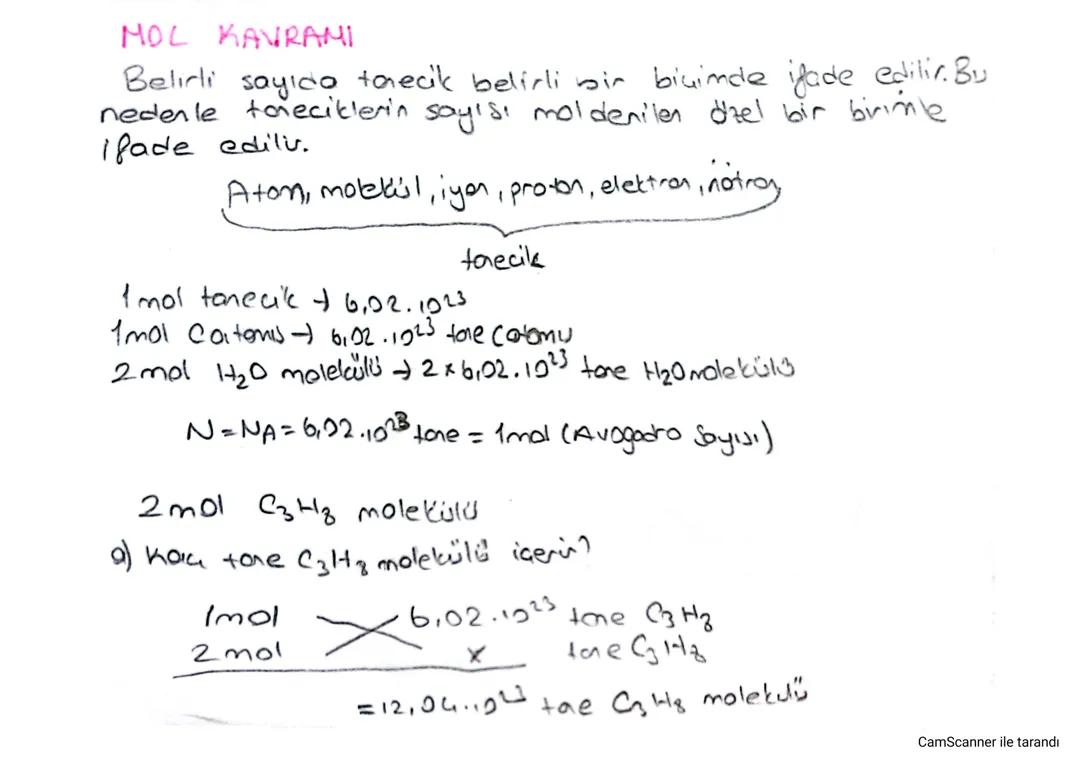 MOL KAVRAMI
Belirli sayıda tanecik belirli bir biçimde ifade edilir. Bu
nedenle taneciklerin sayısı mol denilen özel bir birimle
ifade edilir.
Atom, molekül, iyon, proton, elektron, nötron
tanecik
1 mol tanecik → 6,02.10²³
1 mol Ca atomu → 6,02.10²³ tane Ca atomu
2 mol H₂O molekülü → 2x6,02.10²³ tane H₂O molekülü
N = NA = 6,02.10²³ tane = 1mol (Avogadro Sayısı)
2 mol C₃H₈ molekülü
a) Kaç tane C₃H₈ molekülü içerir?
1mol 6,02.10²³ tane C₃H₈
2 mol x tane C₃H₈
= 12,04.10²³ tane C₃H₈ molekülü
CamScanner ile tarandı